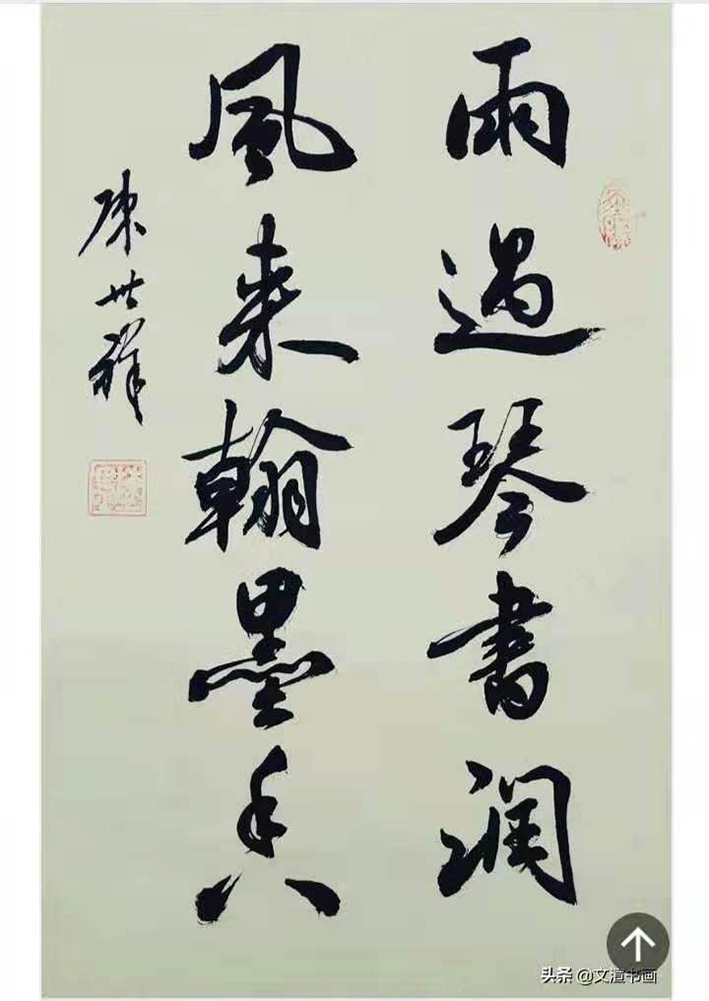 雨過琴書潤
風来翰墨香
陳世祥
头条 @文渲书画